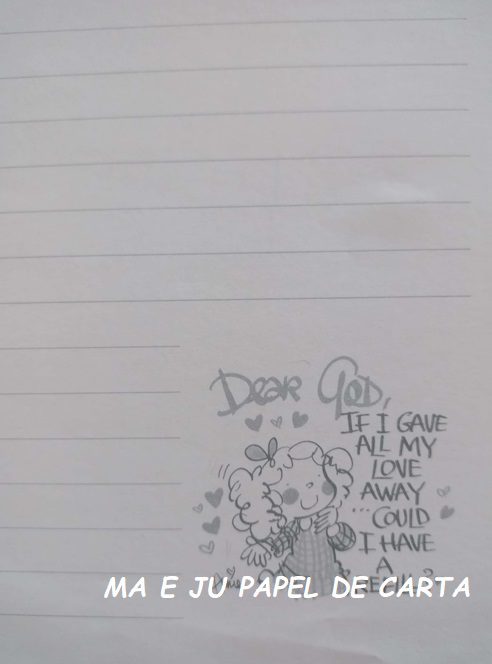 Dear God,
IF I GAVE
ALL MY
LOVE
AWAY
...COULD
I HAVE
A
MA E JU PAPEL DE CARTA